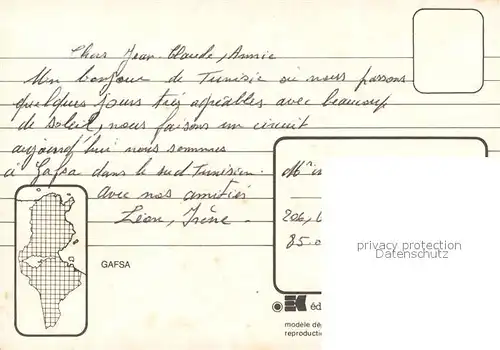 Chers Jean-Claude, Annie
Un bonjour de Tunisie où nous passons
quelques jours très agréables avec beaucoup
de soleil, nous faisons un circuit
aujourd'hui nous sommes
à Gafsa dans le sud Tunisien.
avec nos amitiés
Léon, Irène.
Mr
206,
85.0
privacy protection
Datenschutz
GAFSA
EK éd
modèle dé
reproductio